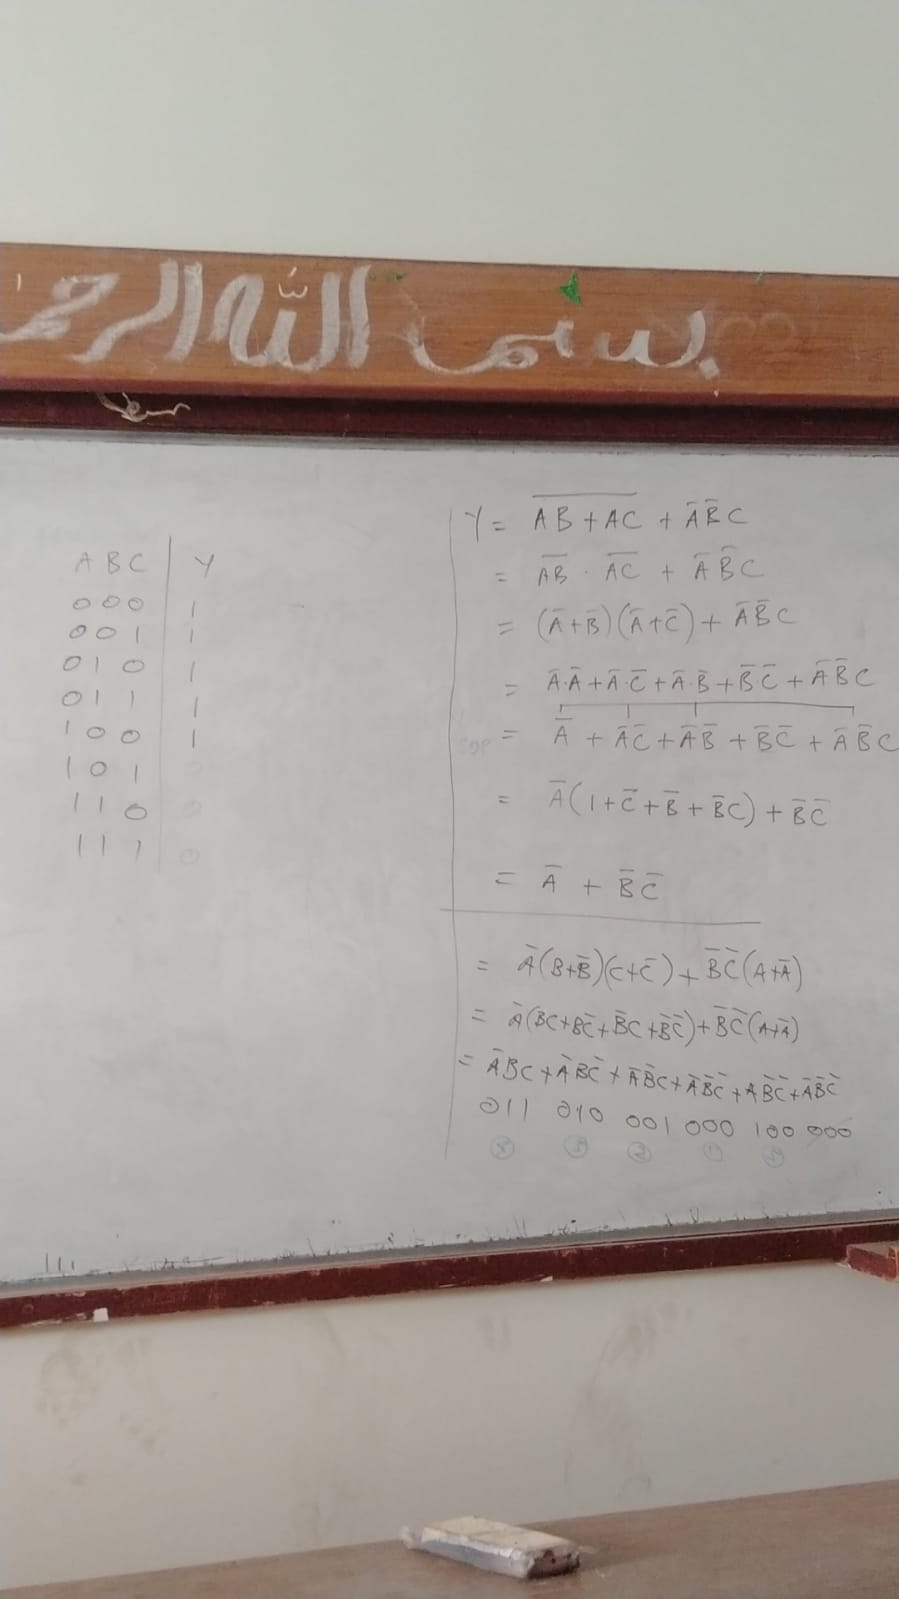 بسم الله الرحم
A B C | Y
0 0 0 | 1
0 0 1 | 1
0 1 0 | 1
0 1 1 | 1
1 0 0 | 1
1 0 1 | 0
1 1 0 | 0
1 1 1 | 0
Y = \overline{AB + AC} + A̅ B̅ C
= \overline{AB} · \overline{AC} + A̅ B̅ C
= (A̅ + B̅)(A̅ + C̅) + A̅ B̅ C
= A̅·A̅ + A̅·C̅ + A̅·B̅ + B̅ C̅ + A̅ B̅ C
SOP = A̅ + A̅C̅ + A̅ B̅ + B̅C̅ + A̅ B̅ C
= A̅(1 + C̅ + B̅ + B̅C) + B̅C̅
= A̅ + B̅ C̅
= A̅(B+B̅)(C+C̅) + B̅C̅(A+A̅)
= A̅(BC+BC̅+B̅C+B̅C̅)+B̅C̅(A+A̅)
= A̅BC + A̅BC̅ + A̅B̅C + A̅B̅C̅ + AB̅C̅ + A̅B̅C̅
011 010 001 000 100 000